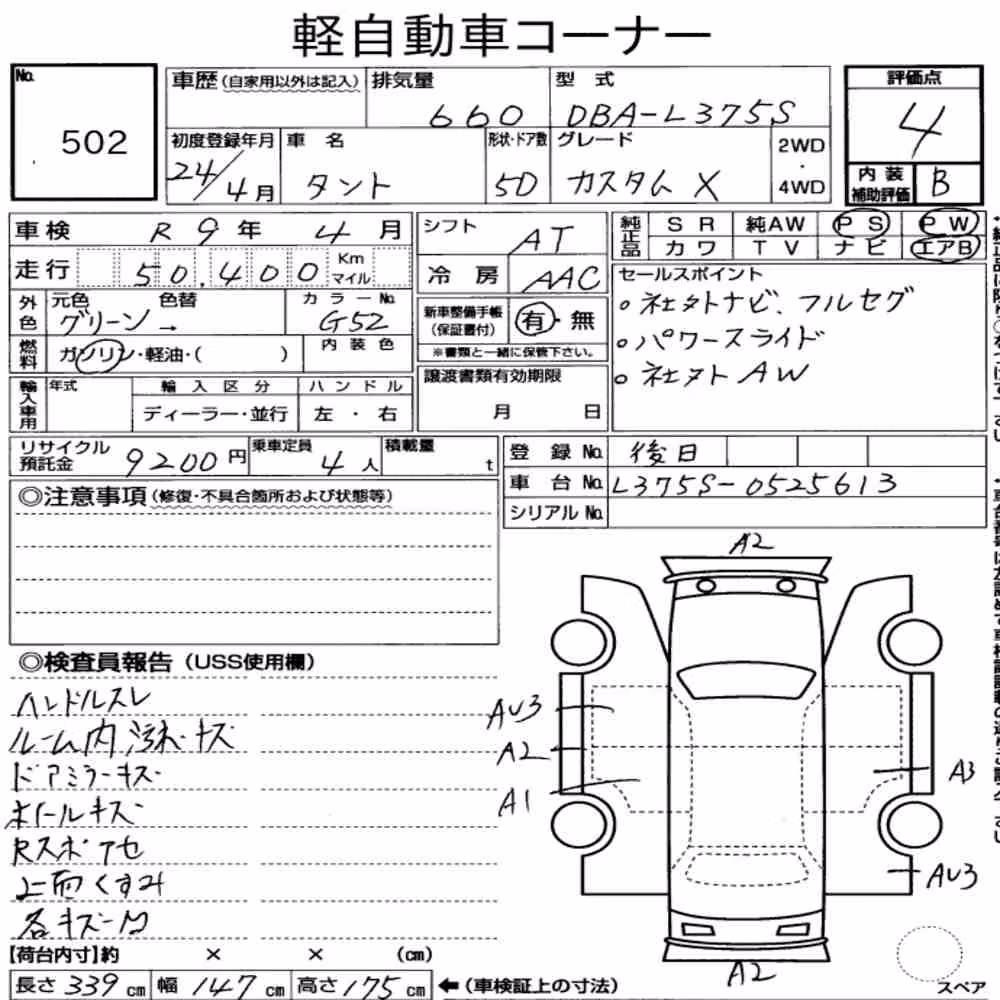 軽自動車コーナー
No. 502
車歴(自家用以外は記入) 排気量 660 型式 DBA-L375S
評価点 4
初度登録年月 24/4月 車名 タント 形状・ドア数 5D グレード カスタム X 2WD・4WD
内装補助評価 B
車検 R9年 4月
シフト AT
純正品 SR 純AW PS PW
カワ TV ナビ エアB
走行 50,400 Km マイル
冷房 AAC
セールスポイント
外色 元色 グリーン → 色替 カラーNo. G52
新車整備手帳(保証書付) 有・無
※書類と一緒に保管下さい。
。社外ナビ、フルセグ
。パワースライド
。社外AW
燃料 ガソリン・軽油・( ) 内装色
輸入車用 年式 輸入区分 ハンドル
ディーラー・並行 左・右
譲渡書類有効期限
月 日
リサイクル預託金 9200円 乗車定員 4人 積載量 t
登録No. 後日
車台No. L375S-0525613
シリアルNo.
◎注意事項(修復・不具合箇所および状態等)
◎検査員報告(USS使用欄)
ハンドルスレ
ルーム内汚れ・キズ
ドアミラーキズ
ホイールキズ
Rスポアセ
上面くすみ
各キズ一凹
A2
AU3
A2
A1
A3
AU3
A2
スペア
【荷台内寸】約 × × (cm)
長さ 339cm 幅 147cm 高さ 175cm ←(車検証上の寸法)